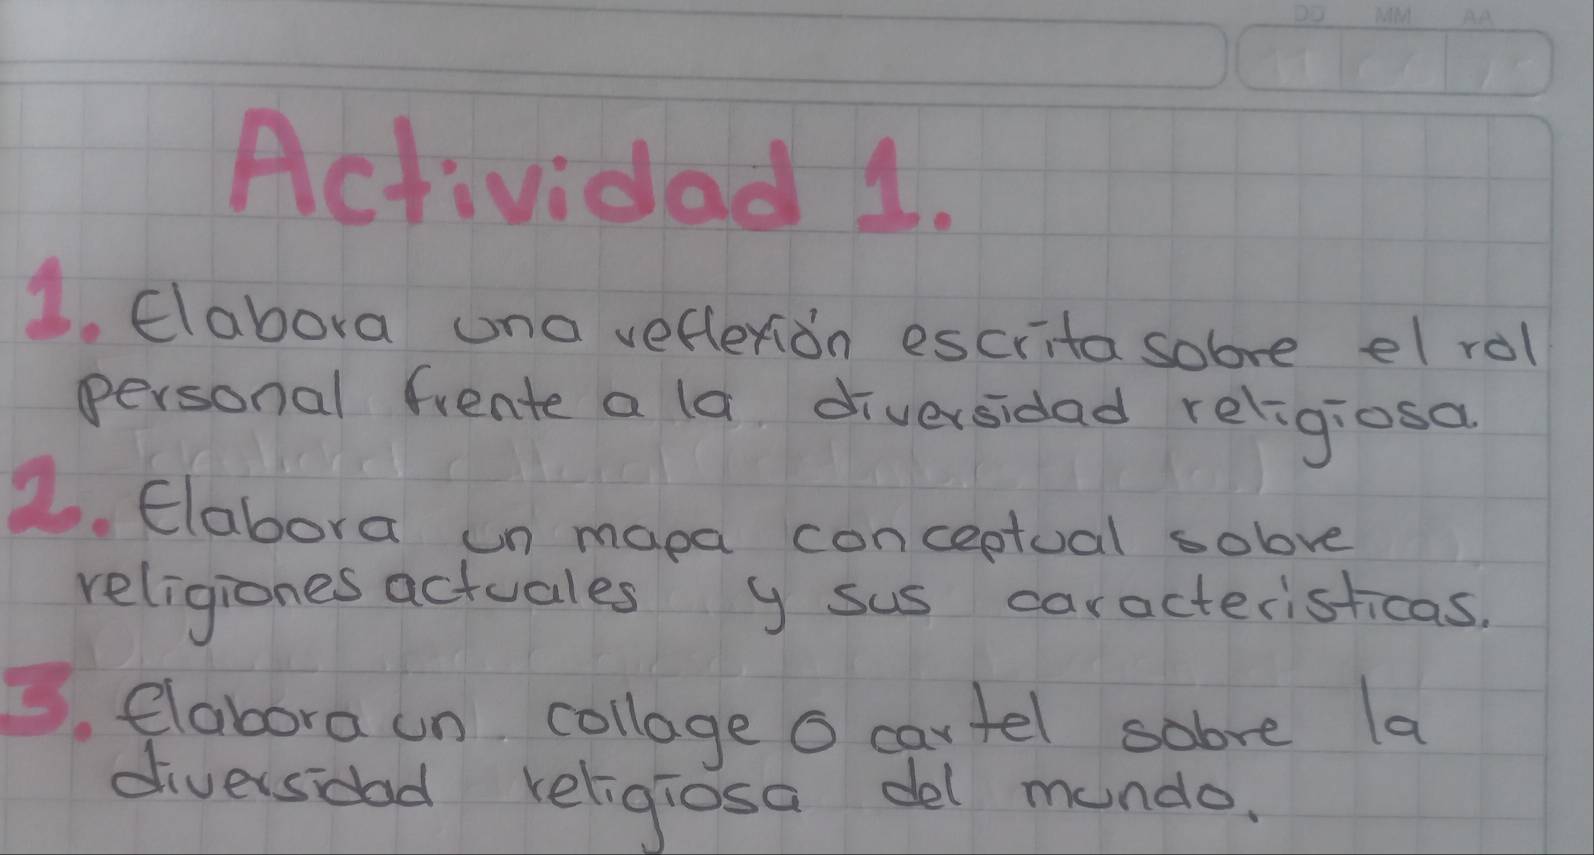 DD MM AA
Actividad 1.
1. Elabora una reflexión escrita sobre el rol
personal frente a la diversidad religiosa.
2. Elabora un mapa conceptual sobre
religiones actuales y sus caracteristicas.
3. Elabora un collage o cartel sobre la
diversidad religiosa del mundo.